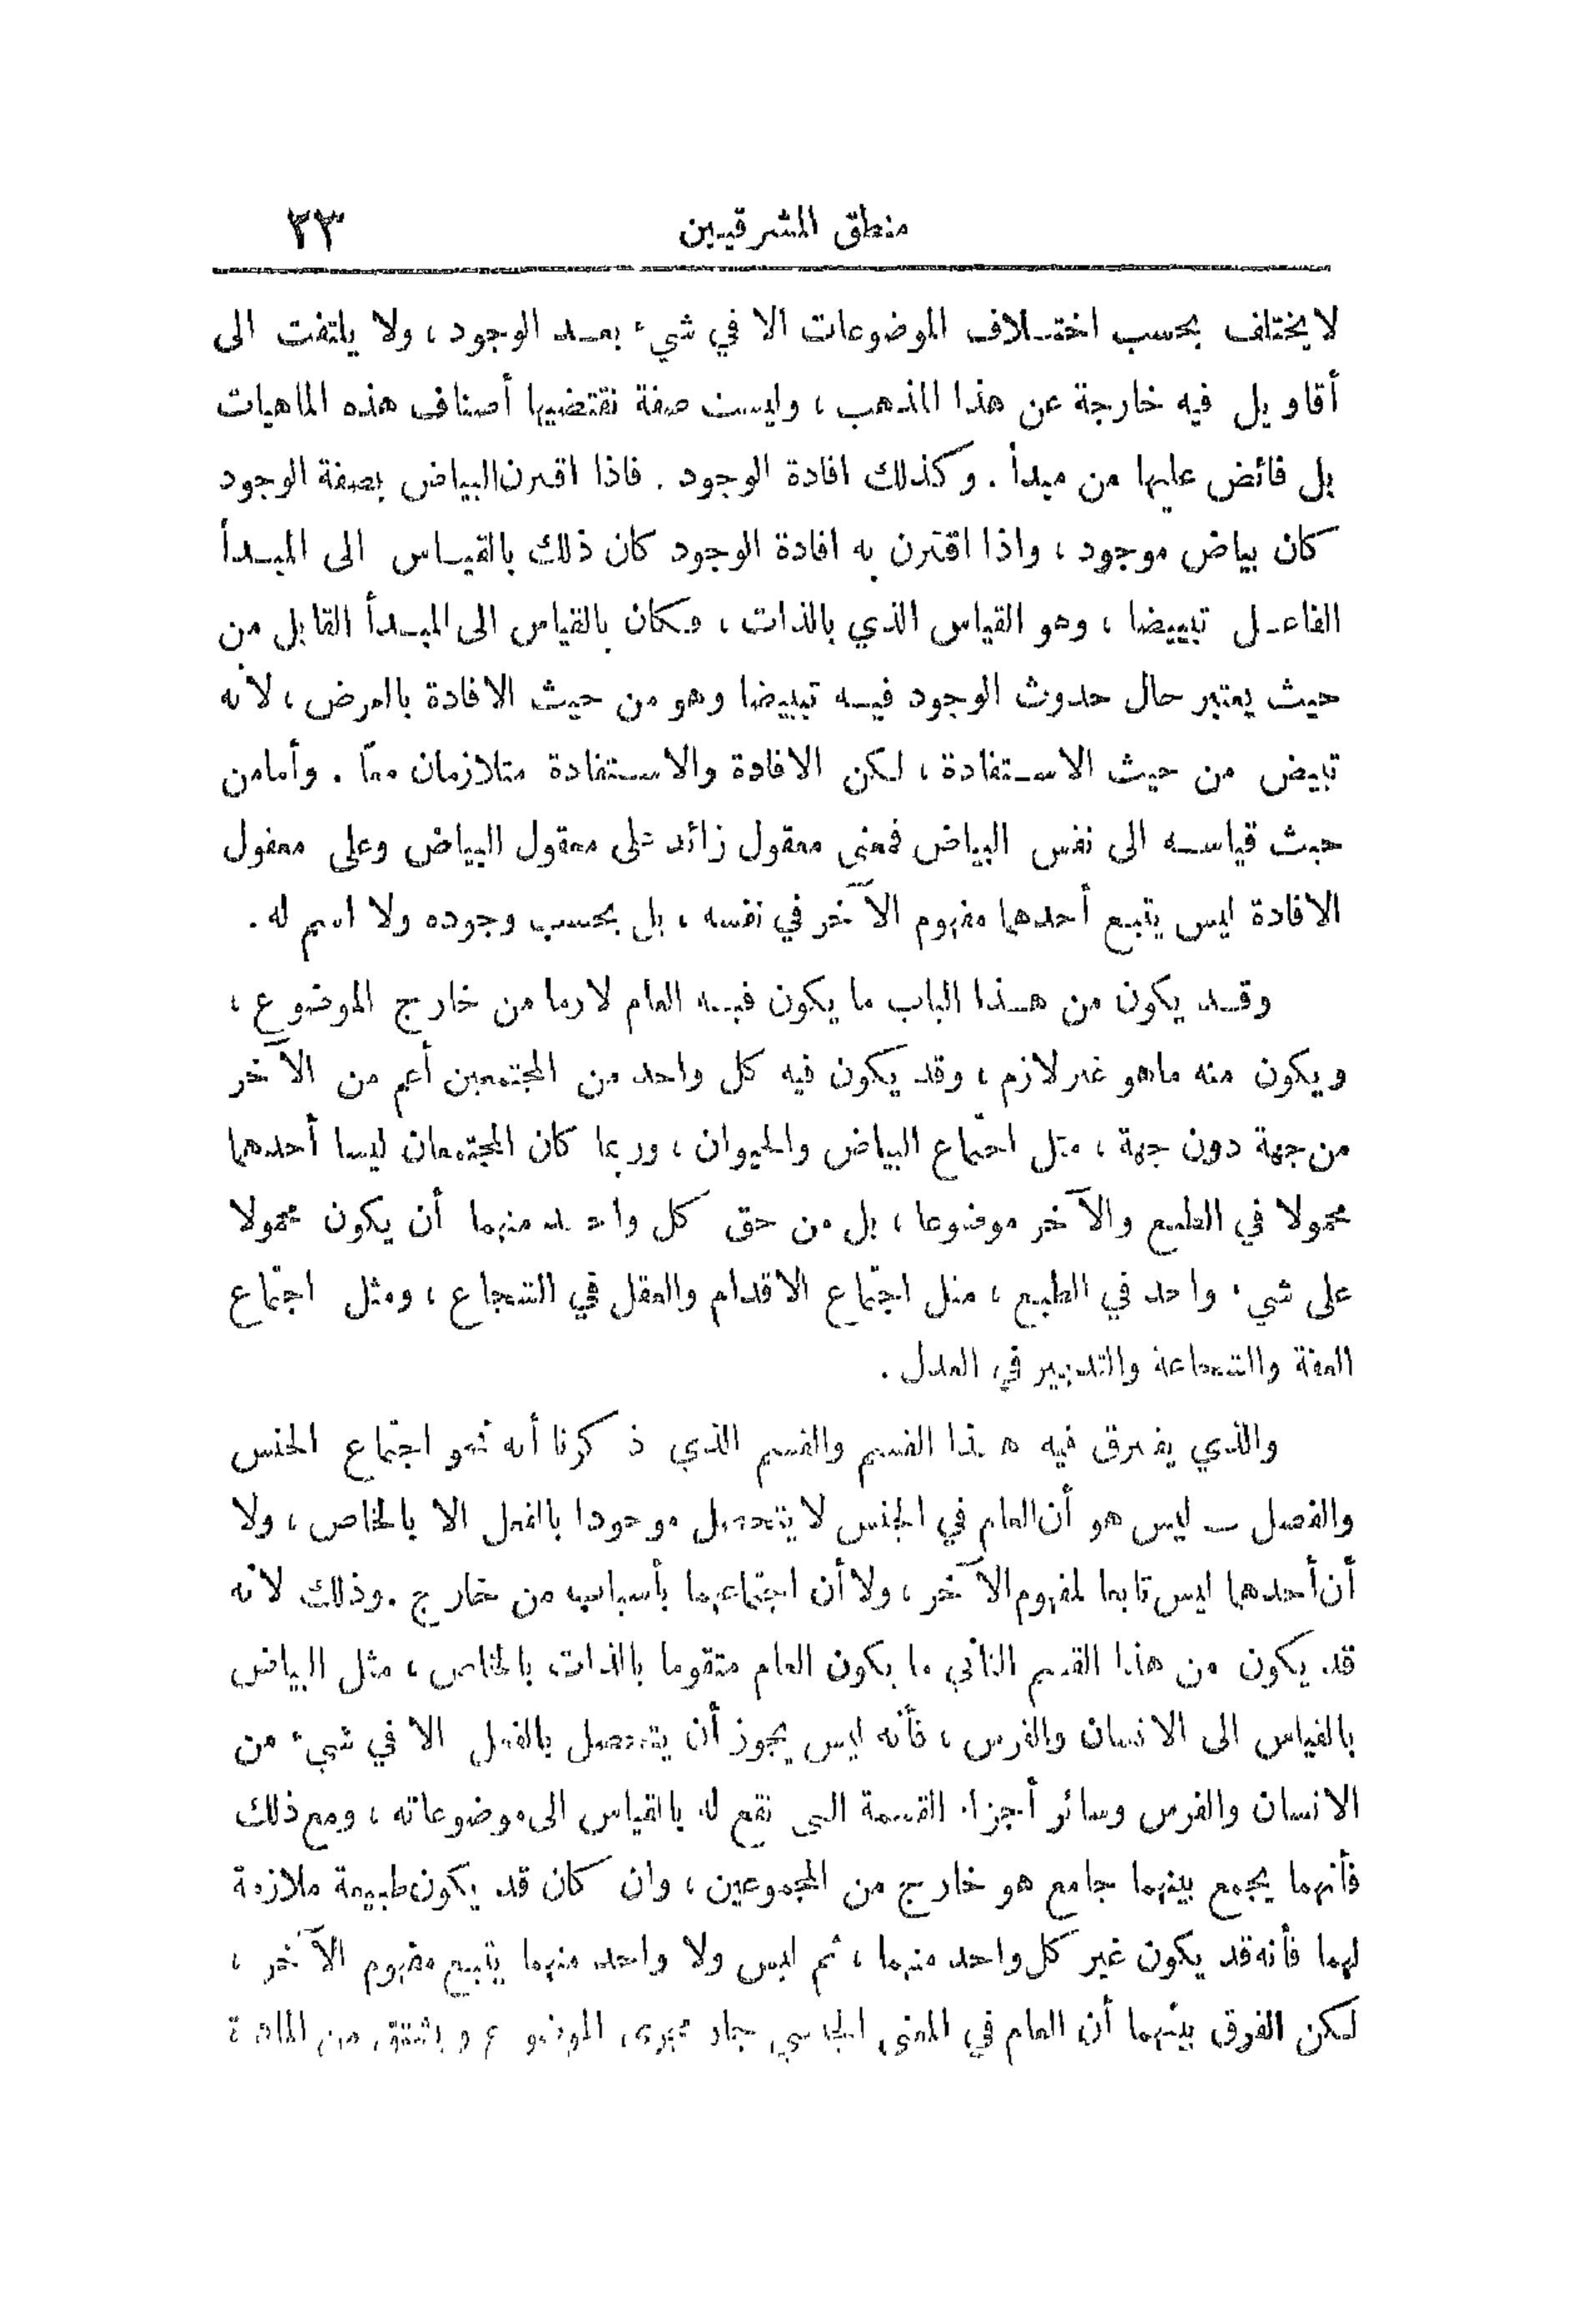 منطق المشرقيين ٢٣
لا يختلف بحسب اختلاف الموضوعات الا في شيء بعد الوجود ، ولا يلتفت الى
أقاويل فيه خارجة عن هذا المذهب ، وليست صفة تقتضيها أصناف هذه الماهيات
بل فائض عليها من مبدأ . وكذلك افادة الوجود . فاذا اقترن البياض بصفة الوجود
كان بياض موجود ، واذا اقترن به افادة الوجود كان ذلك بالقياس الى المبدأ
الفاعل تبييضا ، وهو القياس الذي بالذات ، فكان بالقياس الى المبدأ القابل من
حيث يعتبر حال حدوث الوجود فيه تبييضا وهو من حيث الافادة بالعرض ، لانه
تبيض من حيث الاستفادة ، لكن الافادة والاستفادة متلازمان معاً . وأما من
حيث قياسه الى نفس البياض فمعنى معقول زائد على معقول البياض وعلى معقول
الافادة ليس يتبع أحدهما مفهوم الآخر في نفسه ، بل بحسب وجوده ولا اسم له .
وقد يكون من هذا الباب ما يكون فيه العام لازما من خارج الموضوع ،
ويكون منه ماهو غير لازم ، وقد يكون فيه كل واحد من المجتمعين أعم من الآخر
من جهة دون جهة ، مثل اجتماع البياض والحيوان ، وربما كان المجتمعان ليسا أحدهما
محمولا في الطبع والآخر موضوعا ، بل من حق كل واحد منهما أن يكون محمولا
على شيء واحد في الطبع ، مثل اجتماع الاقدام والعقل في الشجاع ، ومثل اجتماع
العفة والشجاعة والتدبير في العدل .
والذي يفترق فيه هذا القسم والقسم الذي ذكرنا أنه نحو اجتماع الجنس
والفصل – ليس هو أن العام في الجنس لا يتحصل موجودا بالفعل الا بالخاص ، ولا
أن أحدهما ليس تابعا لمفهوم الآخر ، ولا أن اجتماعهما بأسباب من خارج . وذلك لانه
قد يكون من هذا القسم الثاني ما يكون العام متقوما بالذات بالخاص ، مثل البياض
بالقياس الى الانسان والفرس ، فأنه ليس يجوز أن يتحصل بالفعل الا في شيء من
الانسان والفرس وسائر أجزاء القسمة التي تقع له بالقياس الى موضوعاته ، ومع ذلك
فأنهما يجمع بينهما جامع هو خارج من المجموعين ، وان كان قد يكون طبيعة ملازمة
لهما فأنه قد يكون غير كل واحد منهما ، ثم ليس ولا واحد منهما يتبع مفهوم الآخر ،
لكن الفرق بينهما أن العام في المعنى الجنسي جار مجرى الموضوع ويشتق من المادة